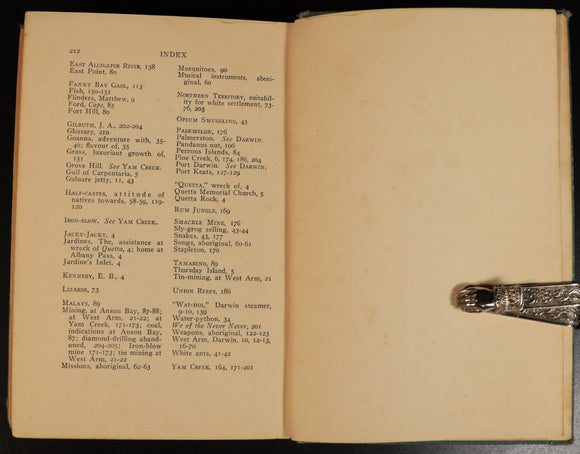 212
INDEX
EAST ALLIGATOR RIVER, 138
East Point, 80
FANNY BAY GAOL, 113
Fish, 150-151
Flinders, Matthew, 9
Ford, Cape, 85
Fort Hill, 80
GILRUTH, J. A., 202-204
Glossary, 210
Goanna, adventure with, 35-
40; flavour of, 35
Grass, luxuriant growth of,
151
Grove Hill. See YAM CREEK.
Gulf of Carpentaria, 5
Gulnare jetty, 11, 43
HALF-CASTES, attitude of
natives towards, 58-59, 119-
120
IRON-BLOW. See YAM CREEK.
JACKY-JACKY, 4
Jardines, The, assistance at
wreck of Quetta, 4; home at
Albany Pass, 4
Jardine's Inlet, 4
KENNEDY, E. B., 4
LIZARDS, 73
MALAYS, 89
Mining, at Anson Bay, 87-88;
at West Arm, 21-22; at
Yam Creek, 171-173; coal,
indications at Anson Bay,
87; diamond-drilling aband-
oned, 204-205; Iron-blow
mine 171-173; tin mining at
West Arm, 21-22
Missions, aboriginal, 62-63
Mosquitoes, 90
Musical instruments, abori-
ginal, 60
NORTHERN TERRITORY, suitabil-
ity for white settlement, 73-
76, 205
OPIUM SMUGGLING, 43
PADEMELON, 176
Palmerston. See DARWIN.
Pandanus nut, 106
Perrons Islands, 84
Pine Creek, 6, 174, 186, 204
Port Darwin. See DARWIN.
Port Keats, 127-129
"QUETTA," wreck of, 4
Quetta Memorial Church, 5
Quetta Rock, 4
RUM JUNGLE, 169
SHACKLE MINE, 176
Sly-grog selling, 43-44
Snakes, 43, 177
Songs, aboriginal, 60-61
Stapleton, 170
TAMARIND, 89
Thursday Island, 5
Tin-mining, at West Arm, 21
UNION REEFS, 186
"WAI-HOI," Darwin steamer,
9-10, 139
Water-python, 34
We of the Never Never, 201
Weapons, aboriginal, 122-123
West Arm, Darwin, 10, 12-13,
16-70
White ants, 41-42
YAM CREEK, 164, 171-201